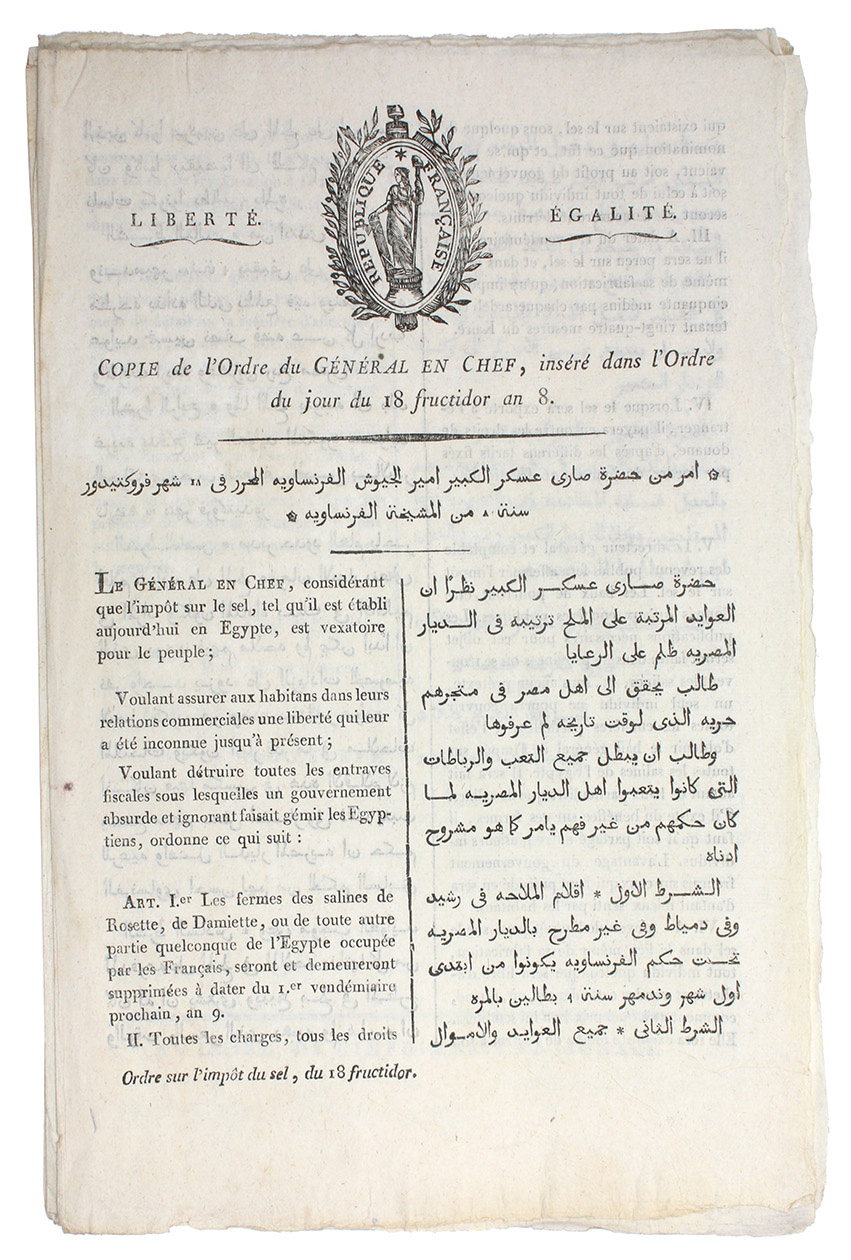 LIBERTÉ.
RÉPUBLIQUE FRANÇAISE
ÉGALITÉ.
COPIE de l'Ordre du GÉNÉRAL EN CHEF, inséré dans l'Ordre
du jour du 18 fructidor an 8.
امر من حضرة صارى عسكر الكبير امير الجيوش الفرنساويه المحرر فى ١٨ شهر فروكتيدور
سنة ٨ من المشيخة الفرنساويه
LE GÉNÉRAL EN CHEF, considérant
que l'impôt sur le sel, tel qu'il est établi
aujourd'hui en Egypte, est vexatoire
pour le peuple;
Voulant assurer aux habitans dans leurs
relations commerciales une liberté qui leur
a été inconnue jusqu'à présent;
Voulant détruire toutes les entraves
fiscales sous lesquelles un gouvernement
absurde et ignorant faisait gémir les Egyp-
tiens, ordonne ce qui suit:
ART. I.er Les fermes des salines de
Rosette, de Damiette, ou de toute autre
partie quelconque de l'Egypte occupée
par les Français, seront et demeureront
supprimées à dater du 1.er vendémiaire
prochain, an 9.
II. Toutes les charges, tous les droits
حضرة صارى عسكر الكبير نظرًا ان
العوايد المرتبة على الملح ترتيبه فى الديار
المصريه ظلم على الرعايا
طالب يحقق الى اهل مصر فى متجرهم
حريه الذى لوقت تاريخه لم عرفوها
وطالب ان يبطل جميع التعب والرباطات
التى كانوا يتعبوا اهل الديار المصريه لما
كان حكمهم من غير فهم يامر كما هو مشروح
ادناه
الشرط الاول * اقلام الملاحه فى رشيد
وفى دمياط وفى غير مطرح بالديار المصريه
تحت حكم الفرنساويه يكونوا من ابتدى
اول شهر وندمهر سنة ٩ بطالين بالمره
الشرط الثانى * جميع العوايد والاموال
Ordre sur l'impôt du sel, du 18 fructidor.